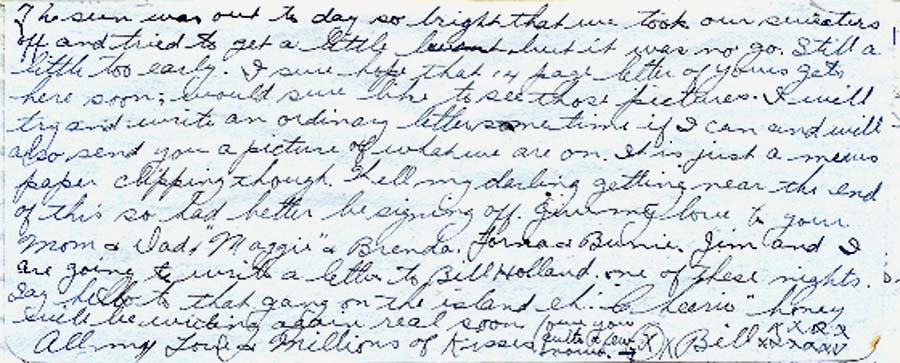 The sun was out to day so bright that we took our sweaters
off and tried to get a little but it was no go. Still a
little too early. I sure hope that 14 page letter of yours gets
here soon; would sure like to see those pictures. I will
try and write an ordinary letter sometime if I can and will
also send you a picture of what we are on. It is just a news
paper clipping though. Well my darling getting near the end
of this so had better be signing off. Give my love to your
Mom & Dad, "Maggie" & Brenda. & Bunnie. Jim and I
are going to write a letter to Bill Holland one of these nights.
Say hello to that gang on the island eh. "Cheerio" honey
will be writing again real soon
All my Love & Millions of Kisses Bill xxxx
xxxxxx